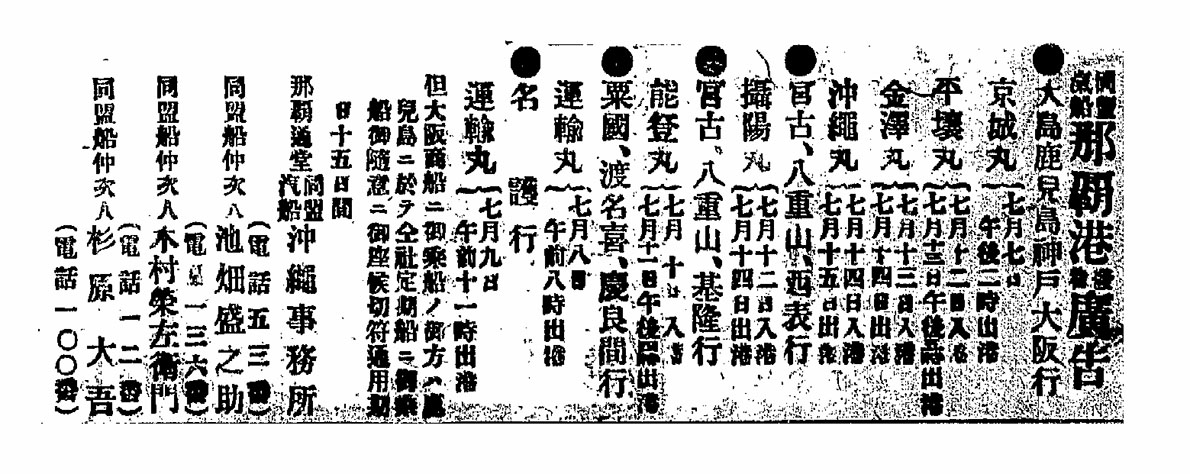 同盟汽船 那覇港發着廣告
●大島鹿兒島神戸大阪行
京城丸 七月七日 午後二時出港
平壤丸 七月十二日入港 七月十三日午後 出港
金澤丸 七月十三日入港 七月十四日出港
沖繩丸 七月十四日入港 七月十五日出港
●宮古、八重山、西表行
攝陽丸 七月十二日入港 七月十四日出港
●宮古、八重山、基隆行
能登丸 七月十日入港 七月十一日午後四時出港
●粟國、渡名喜、慶良間行
運輸丸 七月八日 午前八時出港
●名護行
運輸丸 七月九日 午前十一時出港
但大阪商船ニ御乘船ノ御方ハ鹿
兒島ニ於テ仝社定期船ニ御乘
船御隨意ニ御座候切符通用期
日十五日間
那覇通堂 同盟汽船 沖繩事務所
(電話五三番)
同盟船仲次人 池畑盛之助
(電話一三六番)
同盟船仲次人 木村榮左衛門
(電話一二番)
同盟船仲次人 杉原大吾
(電話一〇〇番)